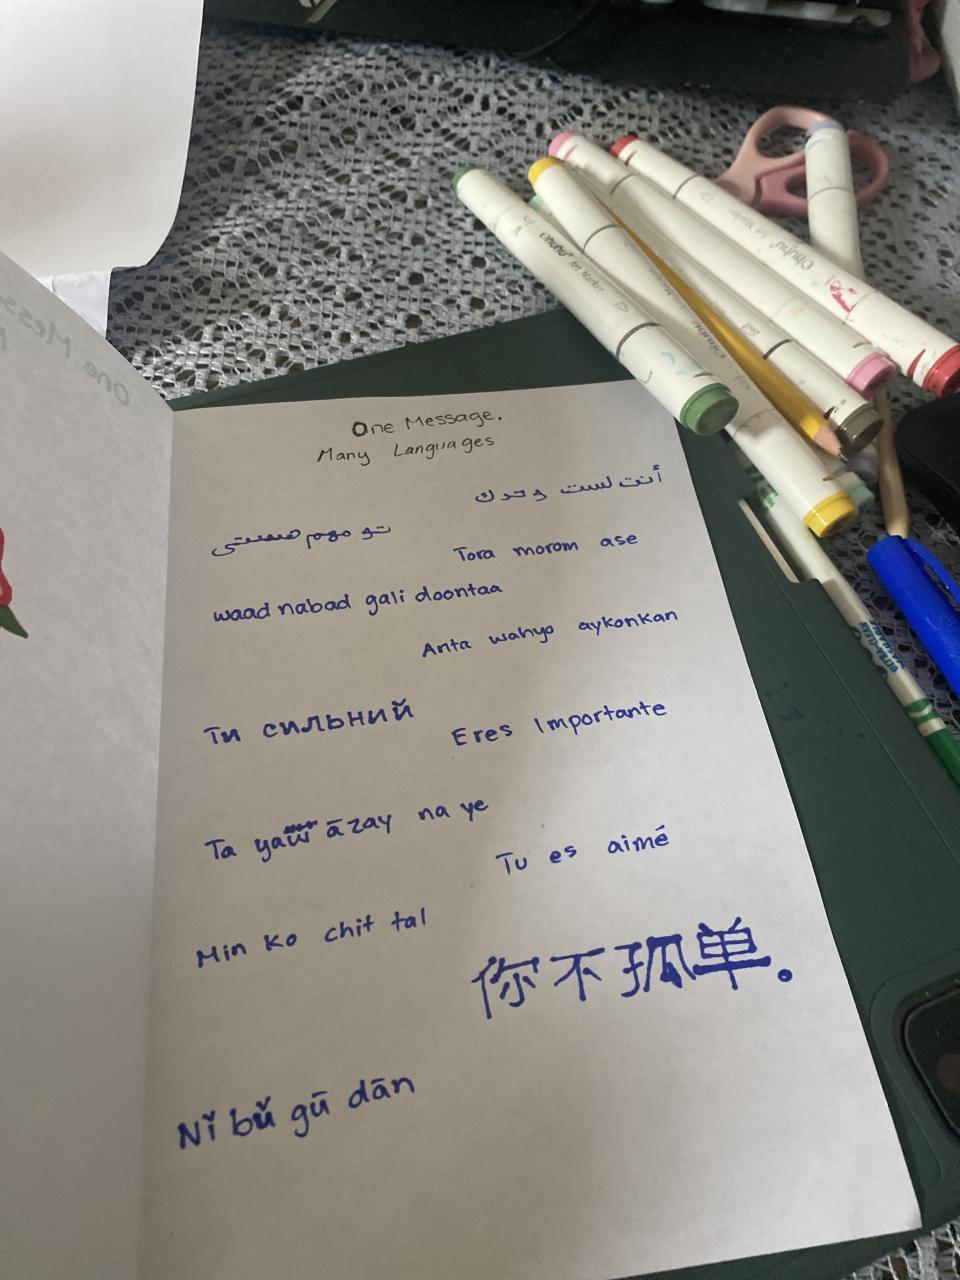 One Message,
Many Languages
أنت لست وحدك
تو مهم هستی
Tora morom ase
waad nabad gali doontaa
Anta wahyo aykonkan
Ти сильний
Eres Importante
Ta yaw āzay na ye
Tu es aimé
Min ko chit tal
你不孤单。
Nǐ bǔ gū dān
One Mess
Ohuhu Art Marker
Ohuhu Art Marker
Ohuhu